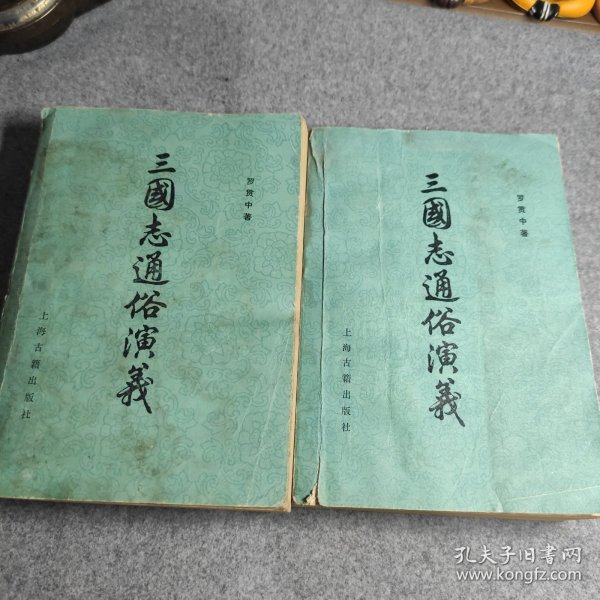 三國志通俗演義
罗贯中著
上海古籍出版社
三國志通俗演義
罗贯中著
上海古籍出版社
孔夫子旧书网
www.kongfz.com